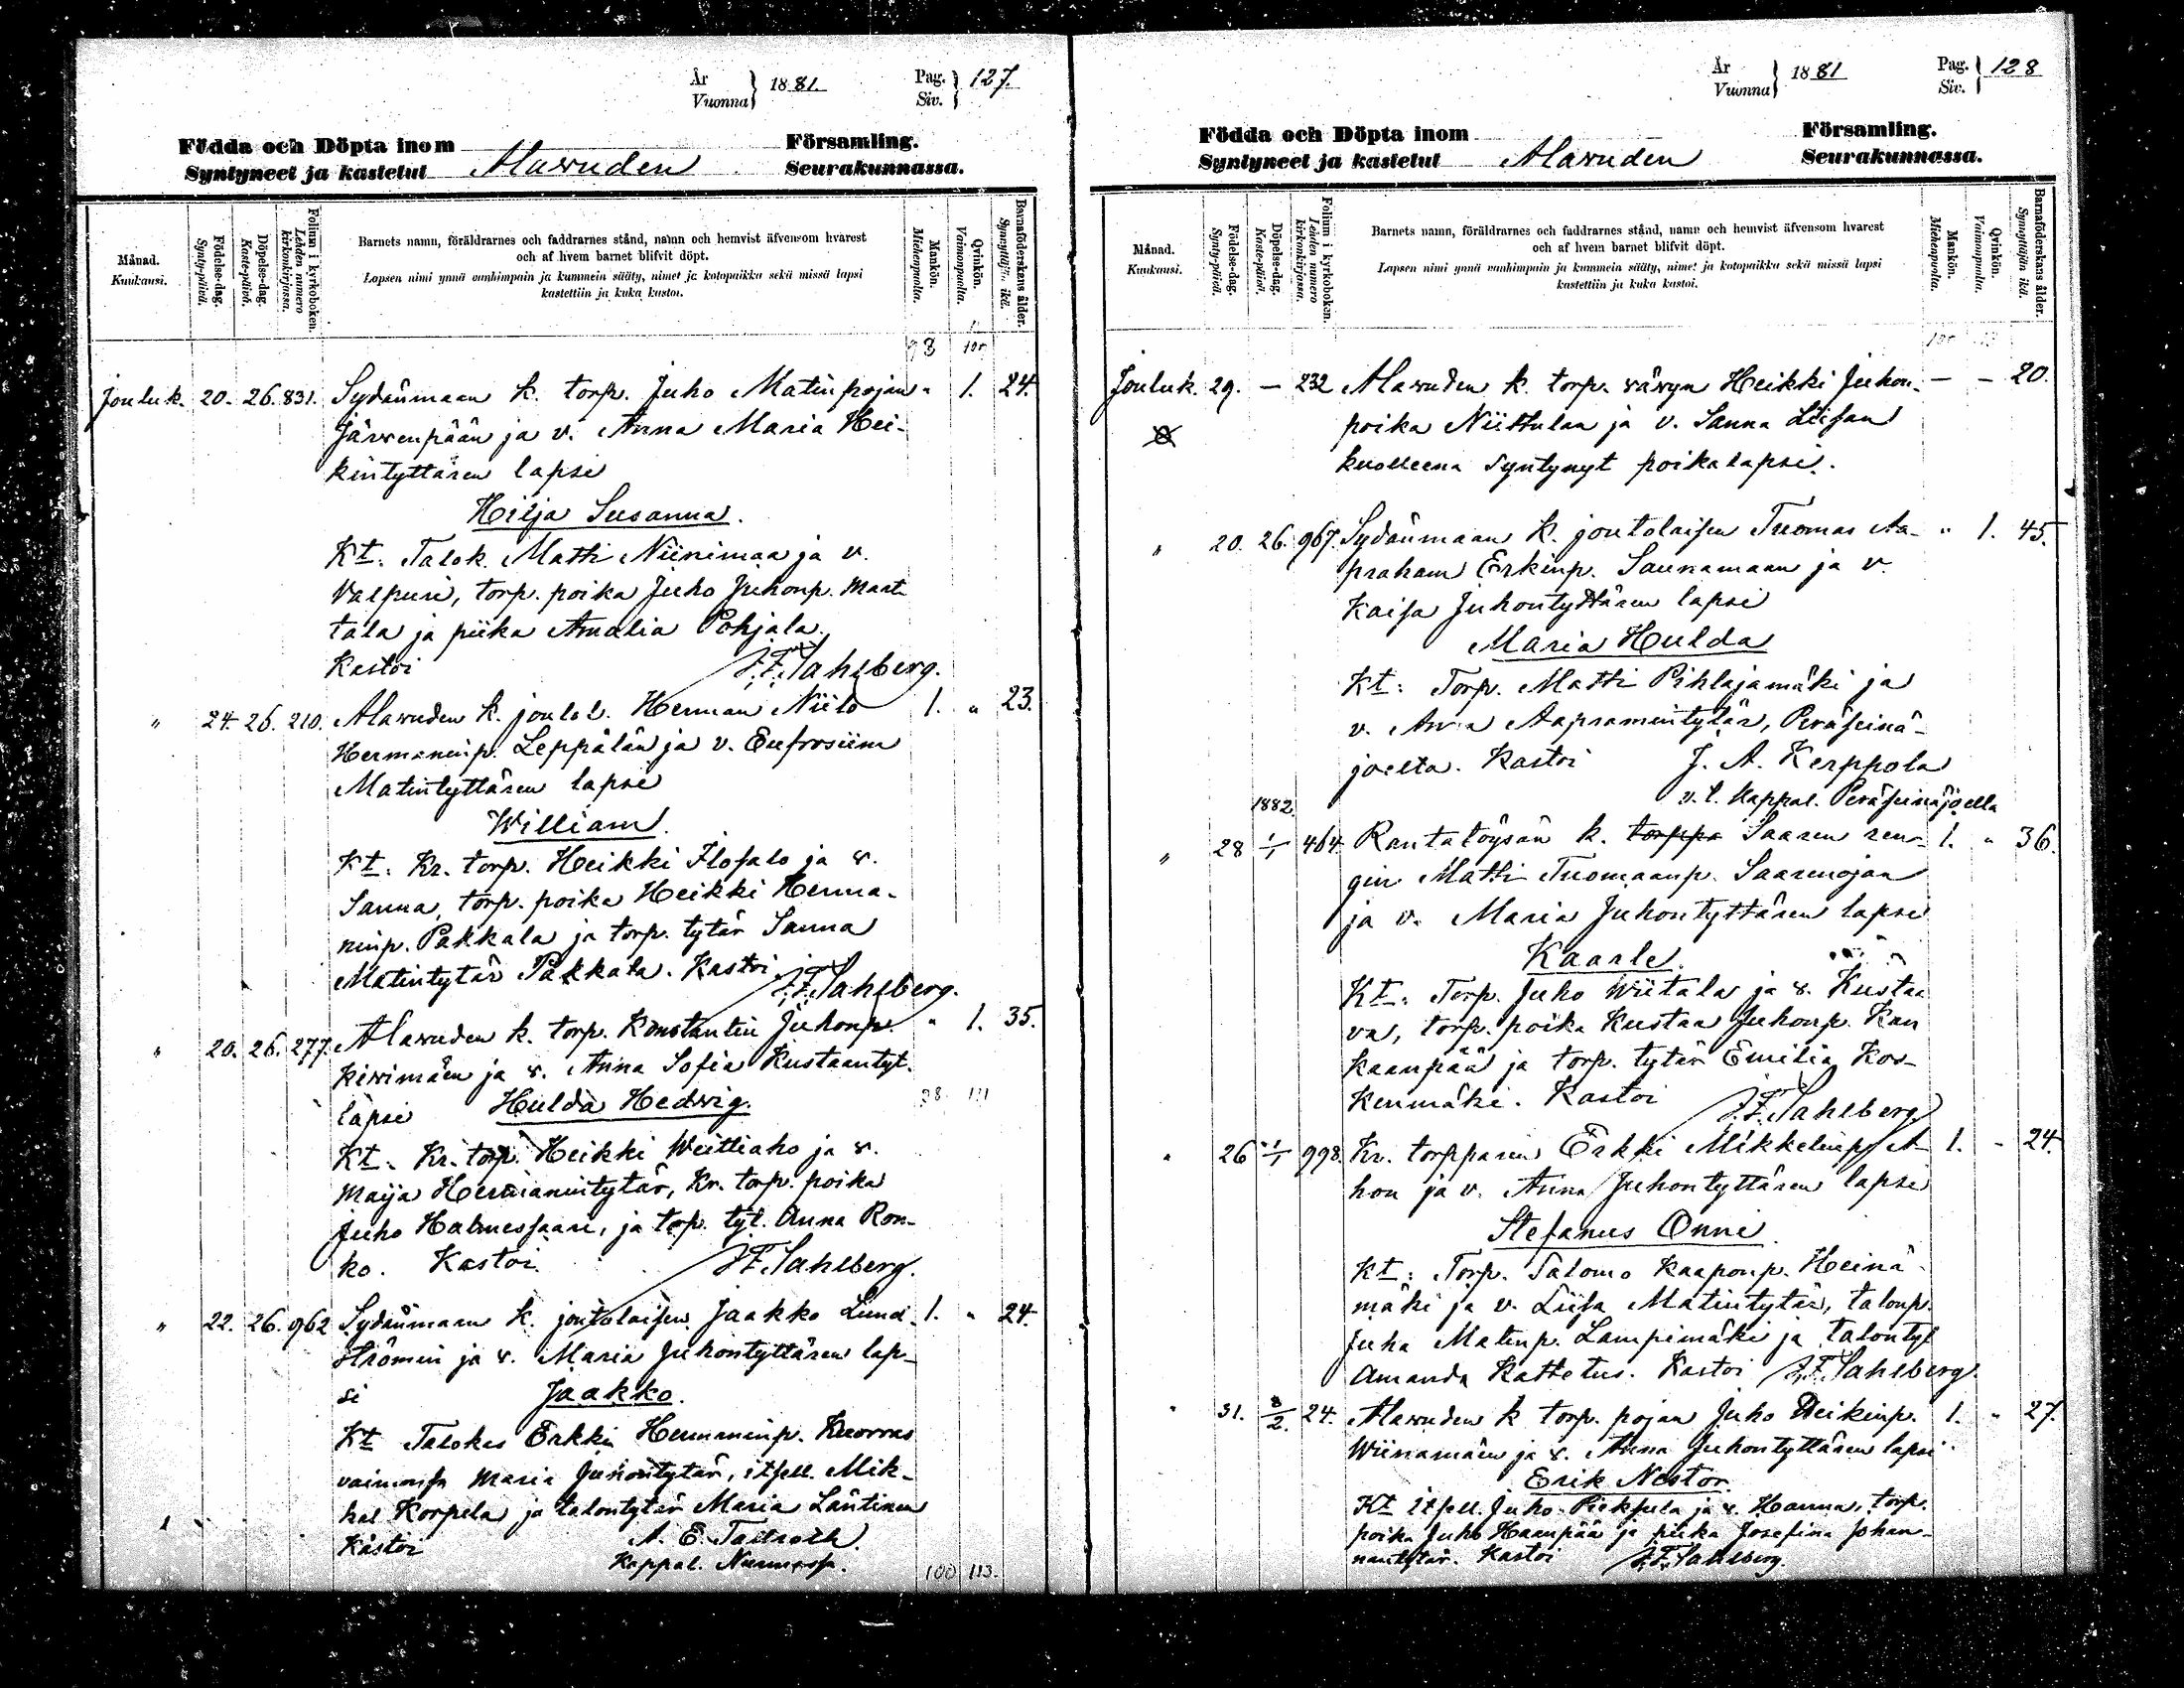 År
Vuonna } 1881.
Pag.
Siv. } 127.
Födda och Döpta inom Församling.
Syntyneet ja kastetut Alavuden Seurakunnassa.
Månad.
Kuukausi.
Födelse-dag.
Synty-päivä.
Döpelse-dag.
Kaste-päivä.
Folium i kyrkoboken.
Lehden numero kirkonkirjassa.
Barnets namn, föräldrarnes och faddrarnes stånd, namn och hemvist äfvensom hvarest
och af hvem barnet blifvit döpt.
Lapsen nimi ynnä vanhimpain ja kummein sääty, nimet ja kotopaikka sekä missä lapsi
kastettiin ja kuka kastoi.
Mankön.
Miehenpuolia.
Qvinkön.
Vaimonpuolia.
Barnaföderskans ålder.
Synnyttäjän ikä.
98
Jouluk. 20. 26. 831. Sydänmaan k. torp. Juho Matinpojan " 1. 24.
Järvenpään ja v. Anna Maria Hei-
kintyttären lapsi
Hilja Susanna.
Kt: Talok. Matti Niinimaa ja v.
Valpuri, torp. poika Juho Juhonp. Mant
tala ja piika Amalia Pohjala.
Kastoi J.F. Sahlberg.
" 24. 26. 210. Alavuden k. joulol. Herman Niilo 1. " 23.
Hermaninp. Leppälän ja v. Eufrosiina
Matintyttären lapsi
William.
Kt: Kr. torp. Heikki Ilosalo ja v.
Sanna, torp. poika Heikki Herma-
ninp. Pakkala ja torp. tytär Sanna
Matintytär Pakkala. Kastoi
J.F. Sahlberg.
" 20. 26. 277. Alavuden k. torp. Konstantin Juhonp. " 1. 35.
Kivimäen ja v. Anna Sofia Kustaantyt.
lapsi Hulda Hedvig. 98 111
Kt: Kr. torp. Heikki Weittiaho ja v.
Maija Hermanintytär, Kr. torp. poika
Juho Halmessaari, ja torp. tyt. Anna Ron-
ko. Kastoi J.F. Sahlberg.
" 22. 26. 962 Sydänmaan k. joutolaisen Jaakko Lund- 1. " 24.
strömin ja v. Maria Juhontyttären lap-
si Jaakko.
Kt Talokas Erkki Hermaninp. Kuorras
vaimonsa Maria Juhontytär, itsell. Mik-
kel Korpela, ja talontytär Maria Läntinen
Kastoi A. E. Tallroth.
Kappal. Nurmossa.
100 113.
År
Vuonna } 1881
Pag.
Siv. } 128
Födda och Döpta inom Församling.
Syntyneet ja kastetut Alavuden Seurakunnassa.
Månad.
Kuukausi.
Födelse-dag.
Synty-päivä.
Döpelse-dag.
Kaste-päivä.
Folium i kyrkoboken.
Lehden numero kirkonkirjassa.
Barnets namn, föräldrarnes och faddrarnes stånd, namn och hemvist äfvensom hvarest
och af hvem barnet blifvit döpt.
Lapsen nimi ynnä vanhimpain ja kummein sääty, nimet ja kotopaikka sekä missä lapsi
kastettiin ja kuka kastoi.
Mankön.
Miehenpuolia.
Qvinkön.
Vaimonpuolia.
Barnaföderskans ålder.
Synnyttäjän ikä.
Jouluk. 29. — 232 Alavuden k. torp. vävyn Heikki Juhon- — – 20.
poika Niittulan ja v. Sanna Liisan
kuolleena syntynyt poikalapsi.
" 20. 26. 967. Sydänmaan k. joutolaisen Tuomas Aa- " 1. 45.
praham Erkinp. Saunamaan ja v.
Kaisa Juhontyttären lapsi
Maria Hulda
Kt: Torp. Matti Pihlajamäki ja
v. Anna Aapramintytär, Peräseinä-
joelta. Kastoi J. A. Kerppola
v.t. Kappal. Peräseinäjoella
1882.
" 28 1/1 464. Rantatöysän k. torppa Saaren ren- 1. " 36.
gin Matti Tuomaanp. Saarenojan
ja v. Maria Juhontyttären lapsi
Kaarle.
Kt: Torp. Juho Wiitala ja v. Kustaa
va, torp. poika Kustaa Juhonp. Kan
kaanpää ja torp. tytär Emilia Kos-
kenmäki. Kastoi J.F. Sahlberg
" 26 1/1 998. Kr. torpparin Erkki Mikkelinp. A- 1. " 24.
hon ja v. Anna Juhontyttären lapsi
Stefanus Onni.
Kt: Torp. Salomo Kaaponp. Heinä-
mäki ja v. Liisa Matintytär, talonp.
Juha Matinp. Lampimäki ja talontyt
Amanda Kattelus. Kastoi J.F. Sahlberg.
" 31. 2/2. 24. Alavuden k torp. pojan Juho Heikinp. 1. " 27.
Wiinamäen ja v. Anna Juhontyttären lapsi
Erik Nestor.
Kt itsell. Juho Pieksula ja v. Hanna, torp.
poika Juho Haanpää ja piika Josefina Johan-
nantytär. Kastoi J.F. Sahlberg.